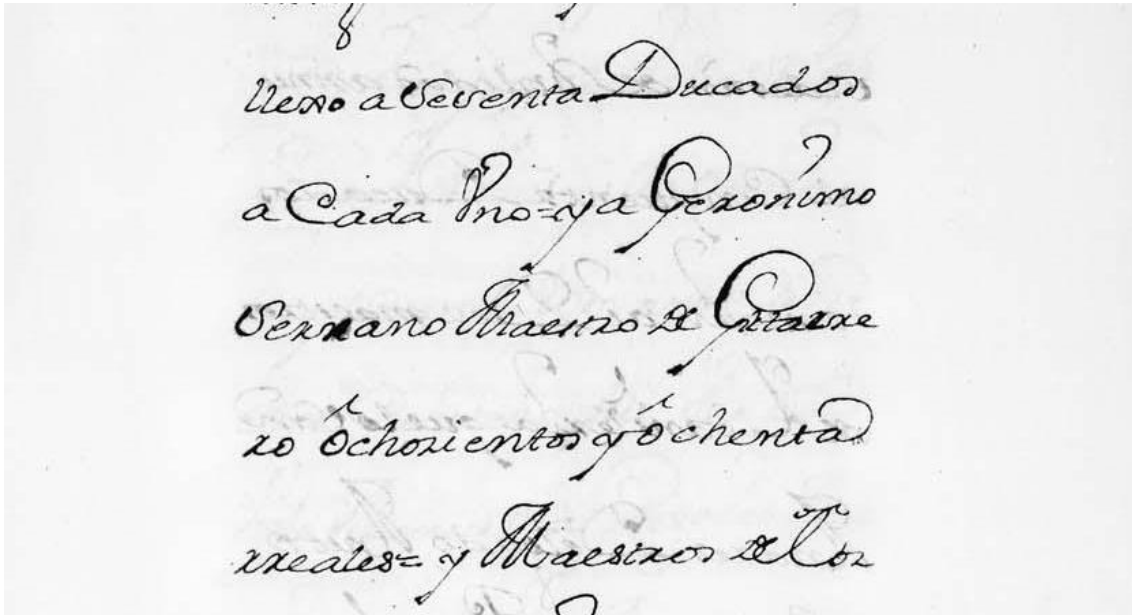 llexo a Sesenta Ducados
a Cada Vno = y a Geronimo
Serrano Maestro de Gitarre
ro ôchozientos y ôchenta
rreales = y Maestros de